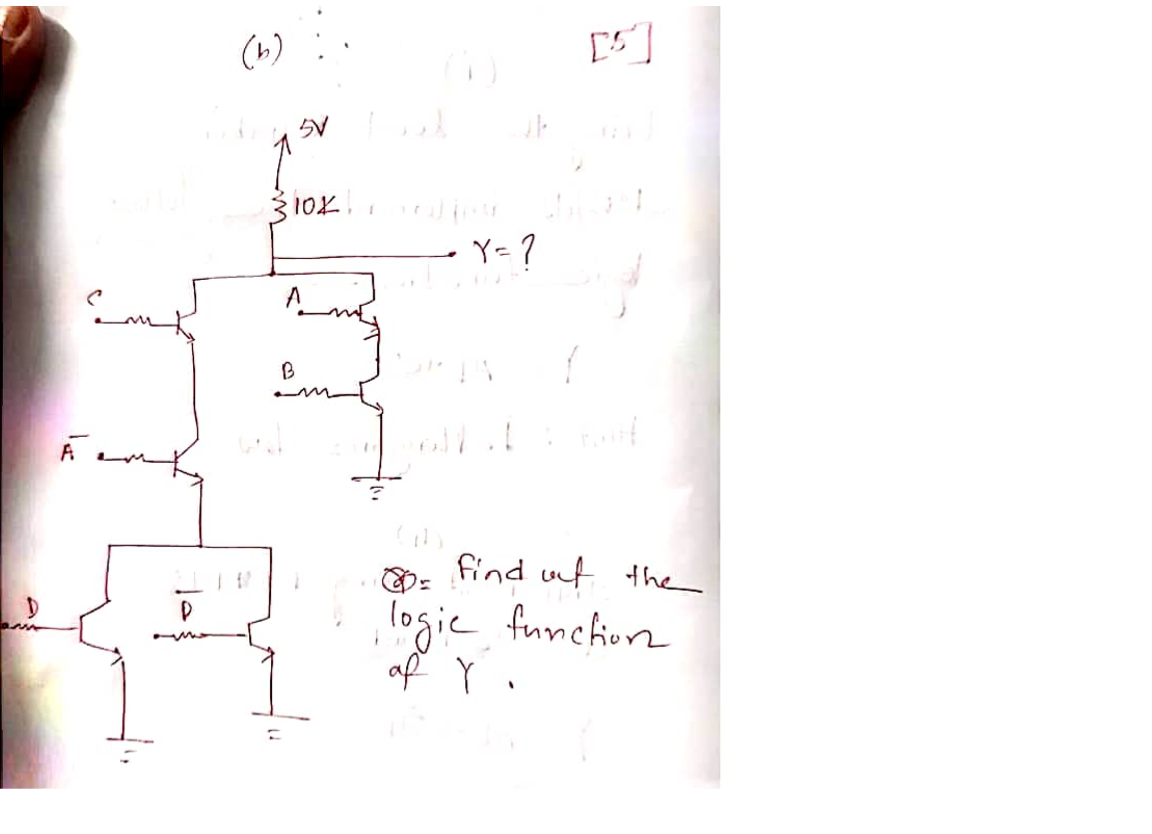 (b) [5]
5V
10K
Y = ?
C
A
B
A̅
D
D̅
Q = find out the
logic function
of Y.